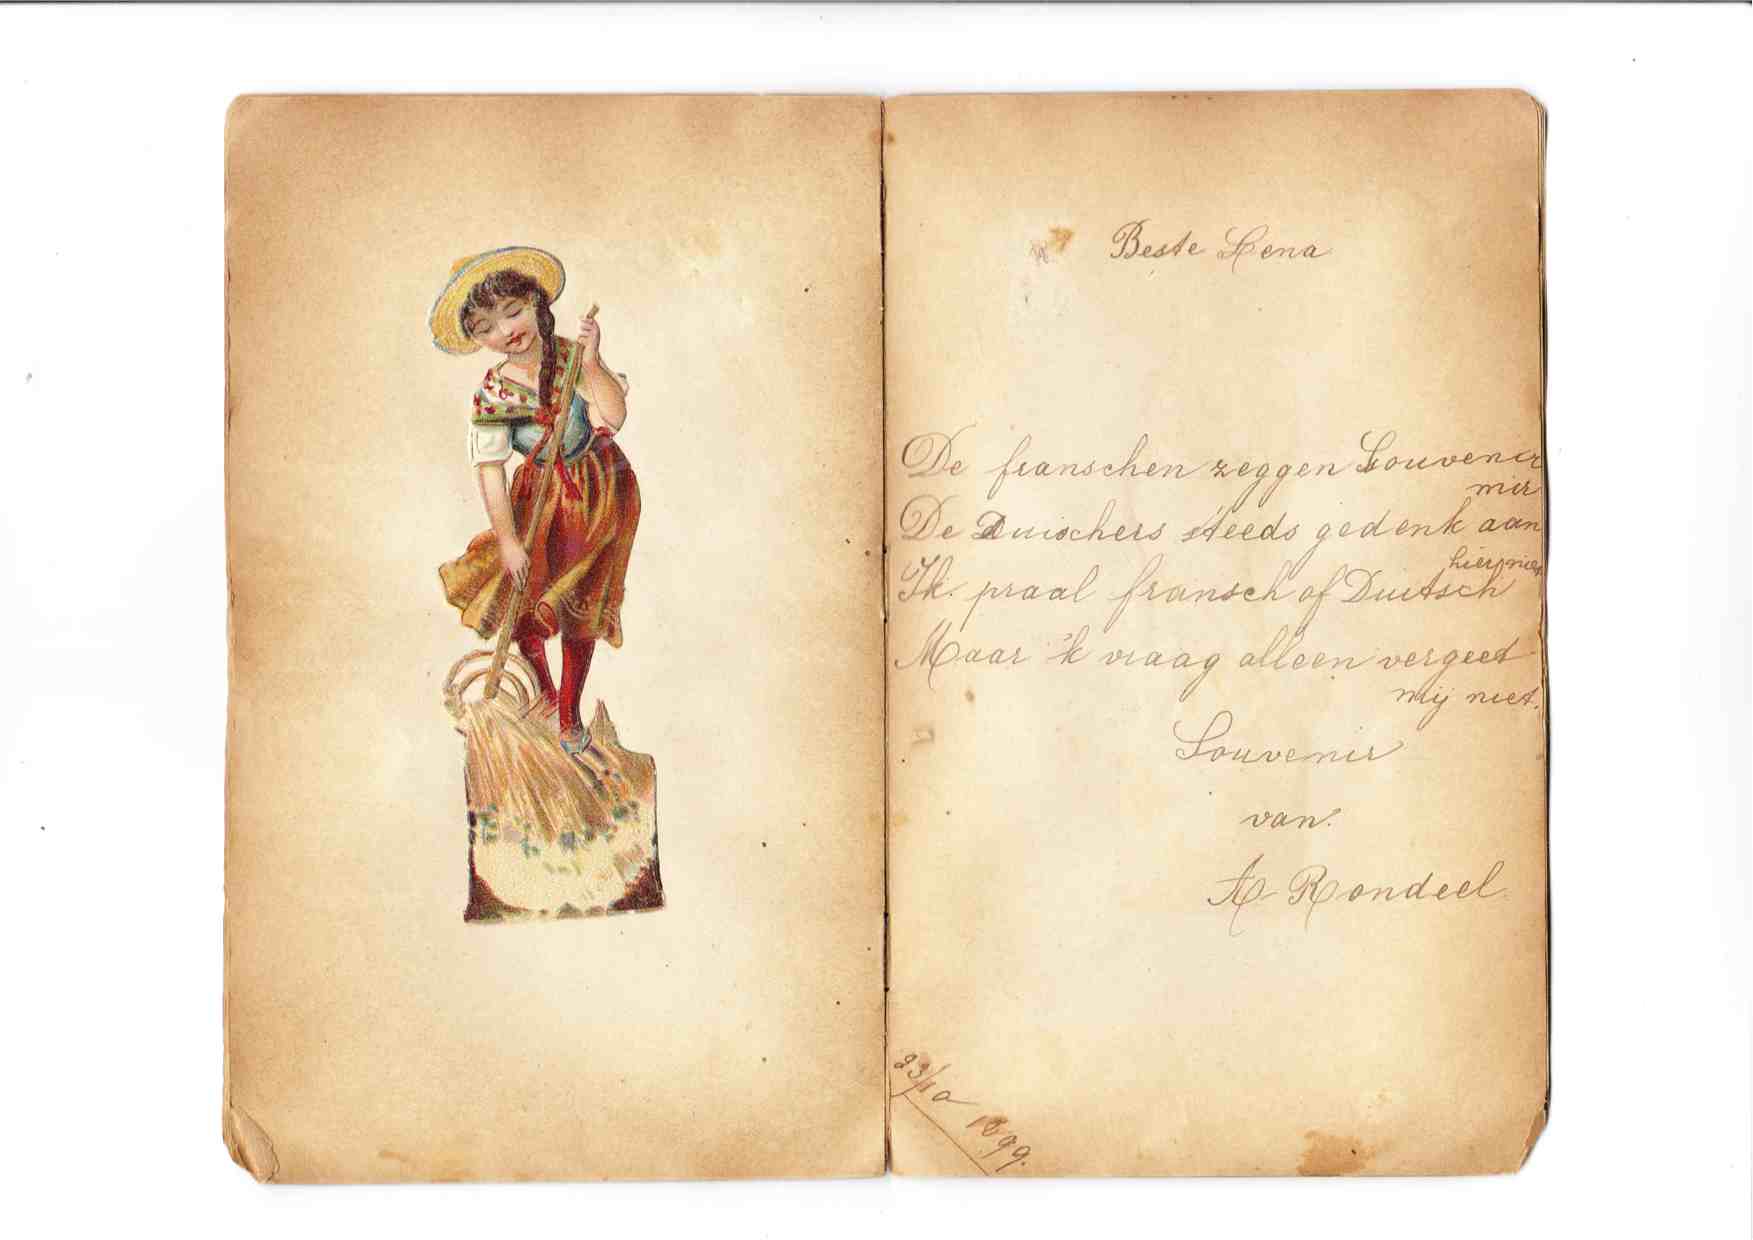 Beste Lena
De franschen zeggen Souvenir
mir
De Duischers steeds gedenk aan
hier niet
Ik praal fransch of Duitsch
Maar 'k vraag alleen vergeet
mij niet.
Souvenir
van.
A Rondeel
23/10
1899.